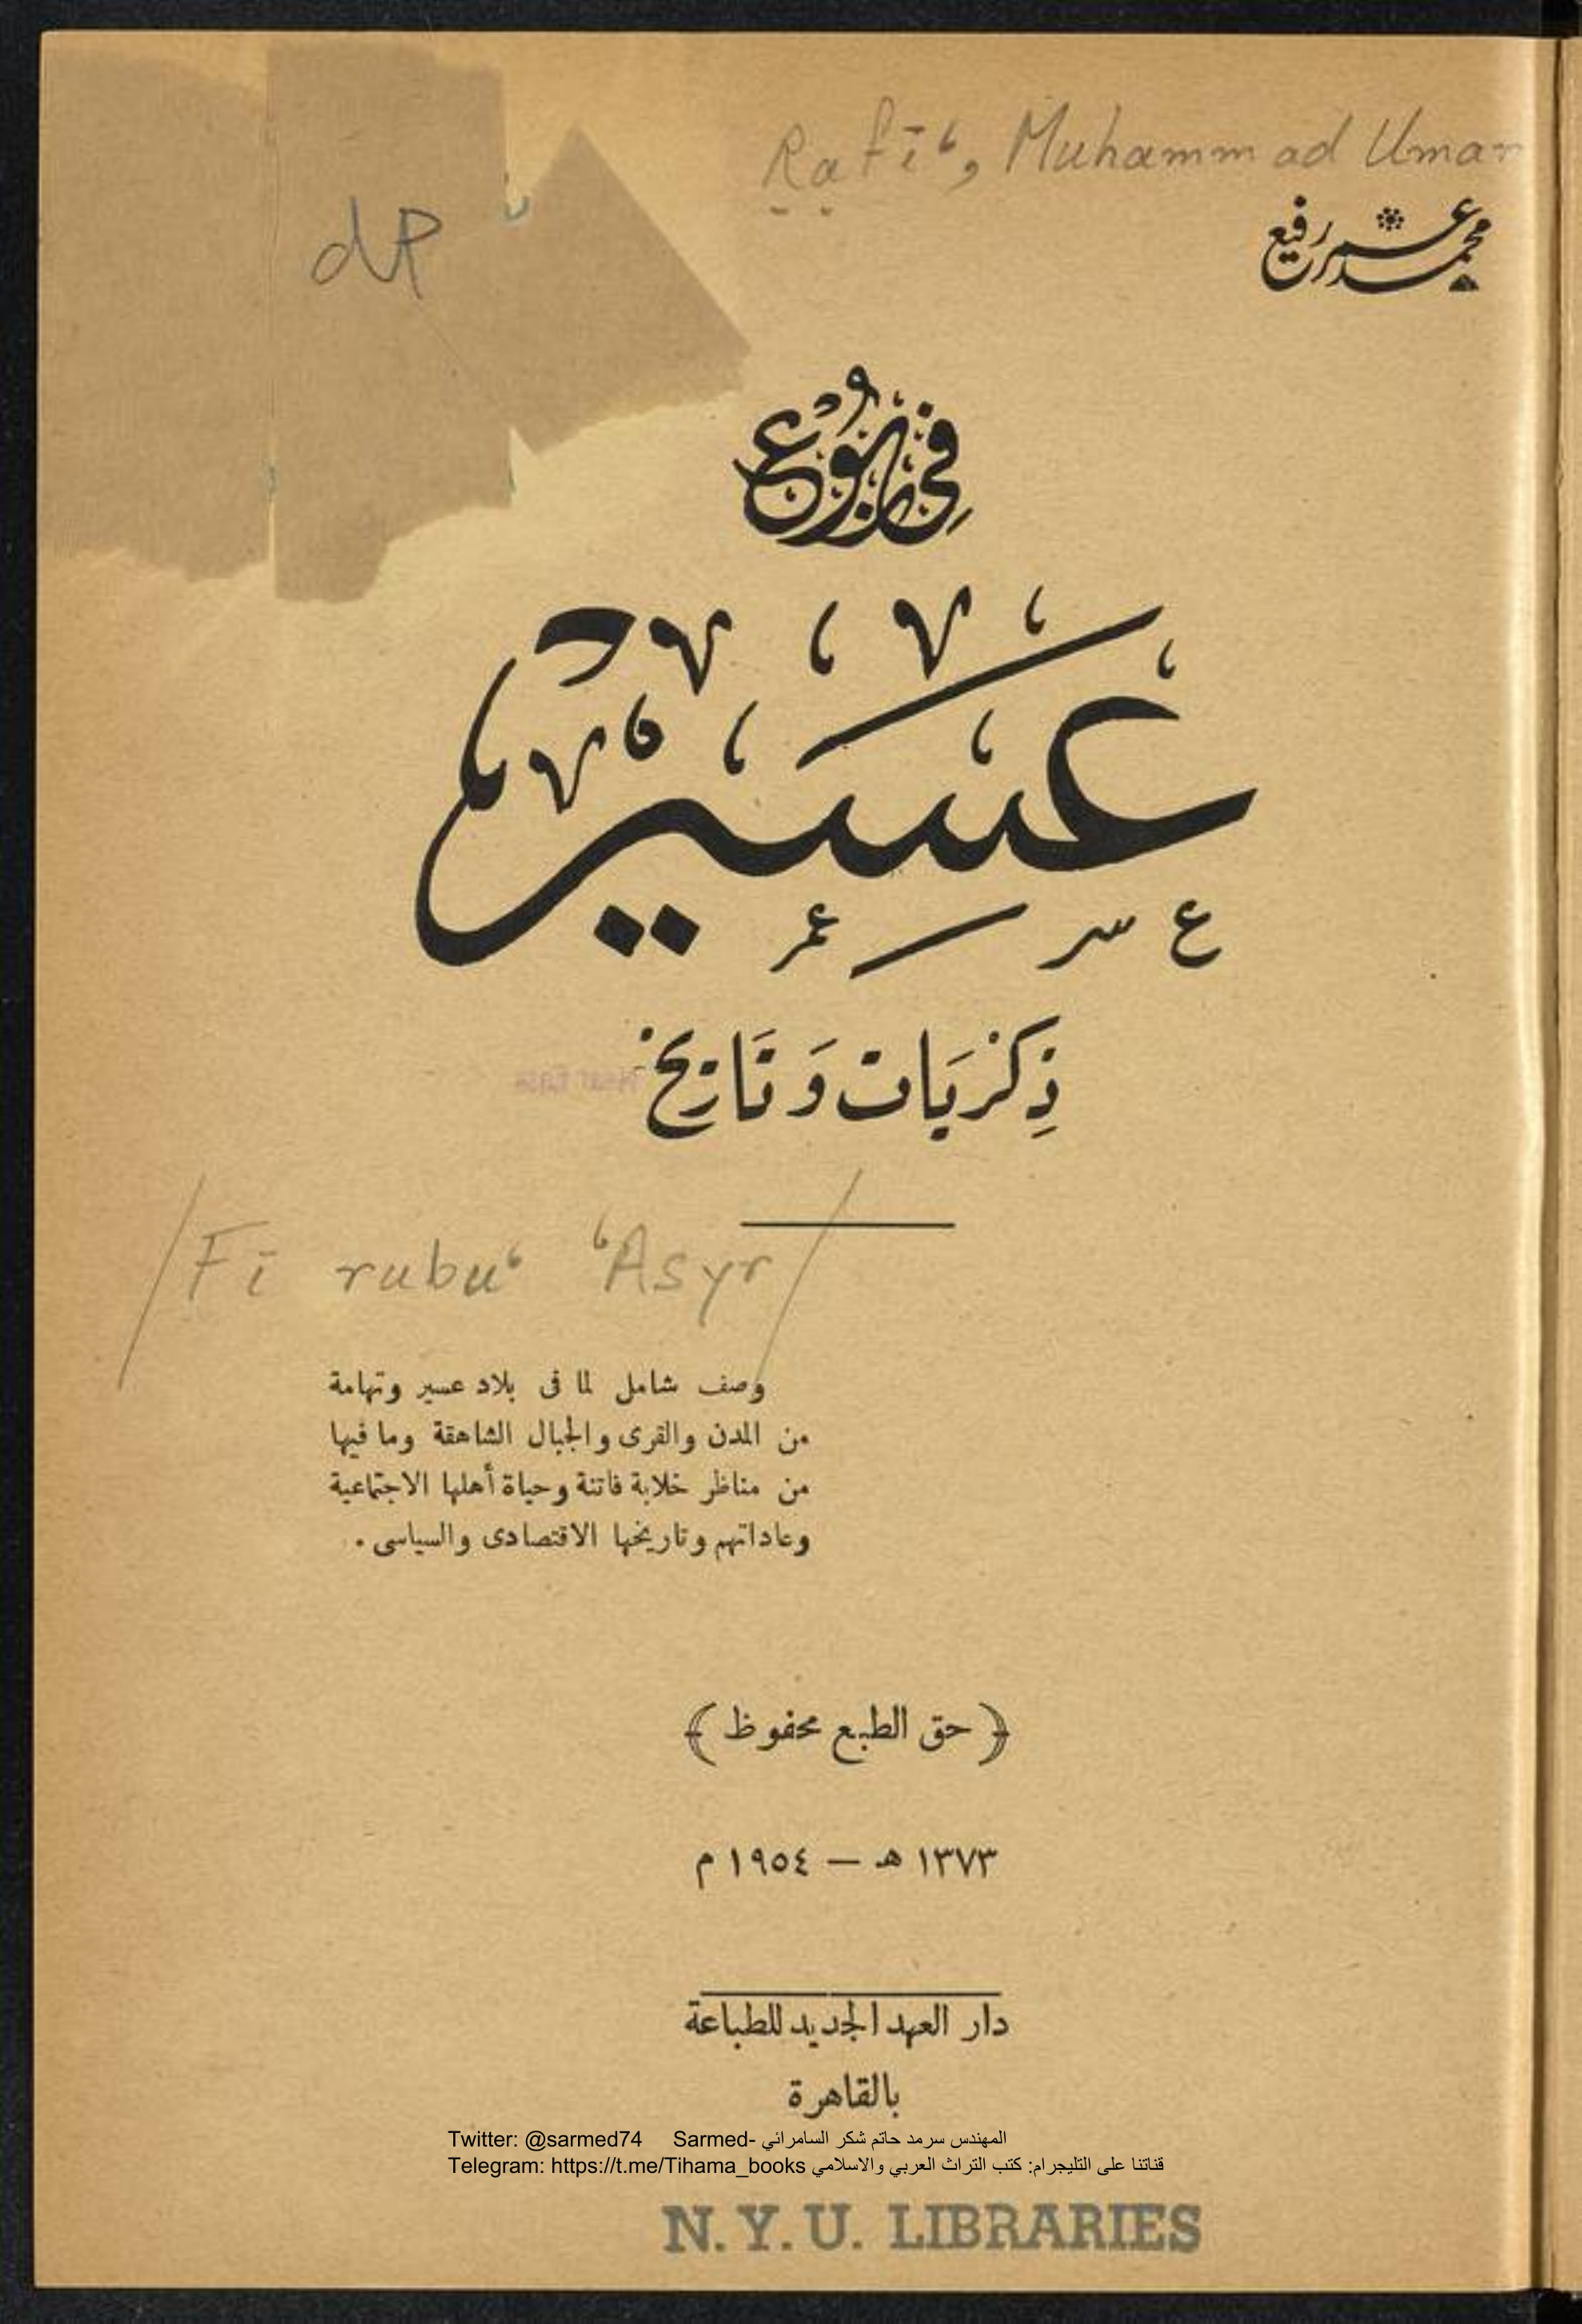 Rafīʿ, Muhammad Umar
dP
محمد عمر رفيع
في ربوع
عسير
ذكريات وتاريخ
/Fī rubuʿ ʿAsyr/
وصف شامل لما فى بلاد عسير وتهامة
من المدن والقرى والجبال الشاهقة وما فيها
من مناظر خلابة فاتنة وحياة أهلها الاجتماعية
وعاداتهم وتاريخها الاقتصادى والسياسى .
﴿ حق الطبع محفوظ ﴾
١٣٧٣ هـ — ١٩٥٤ م
دار العهد الجديد للطباعة
بالقاهرة
Twitter: @sarmed74 Sarmed- المهندس سرمد حاتم شكر السامرائي
Telegram: https://t.me/Tihama_books قناتنا على التليجرام: كتب التراث العربي والاسلامي
N.Y.U. LIBRARIES